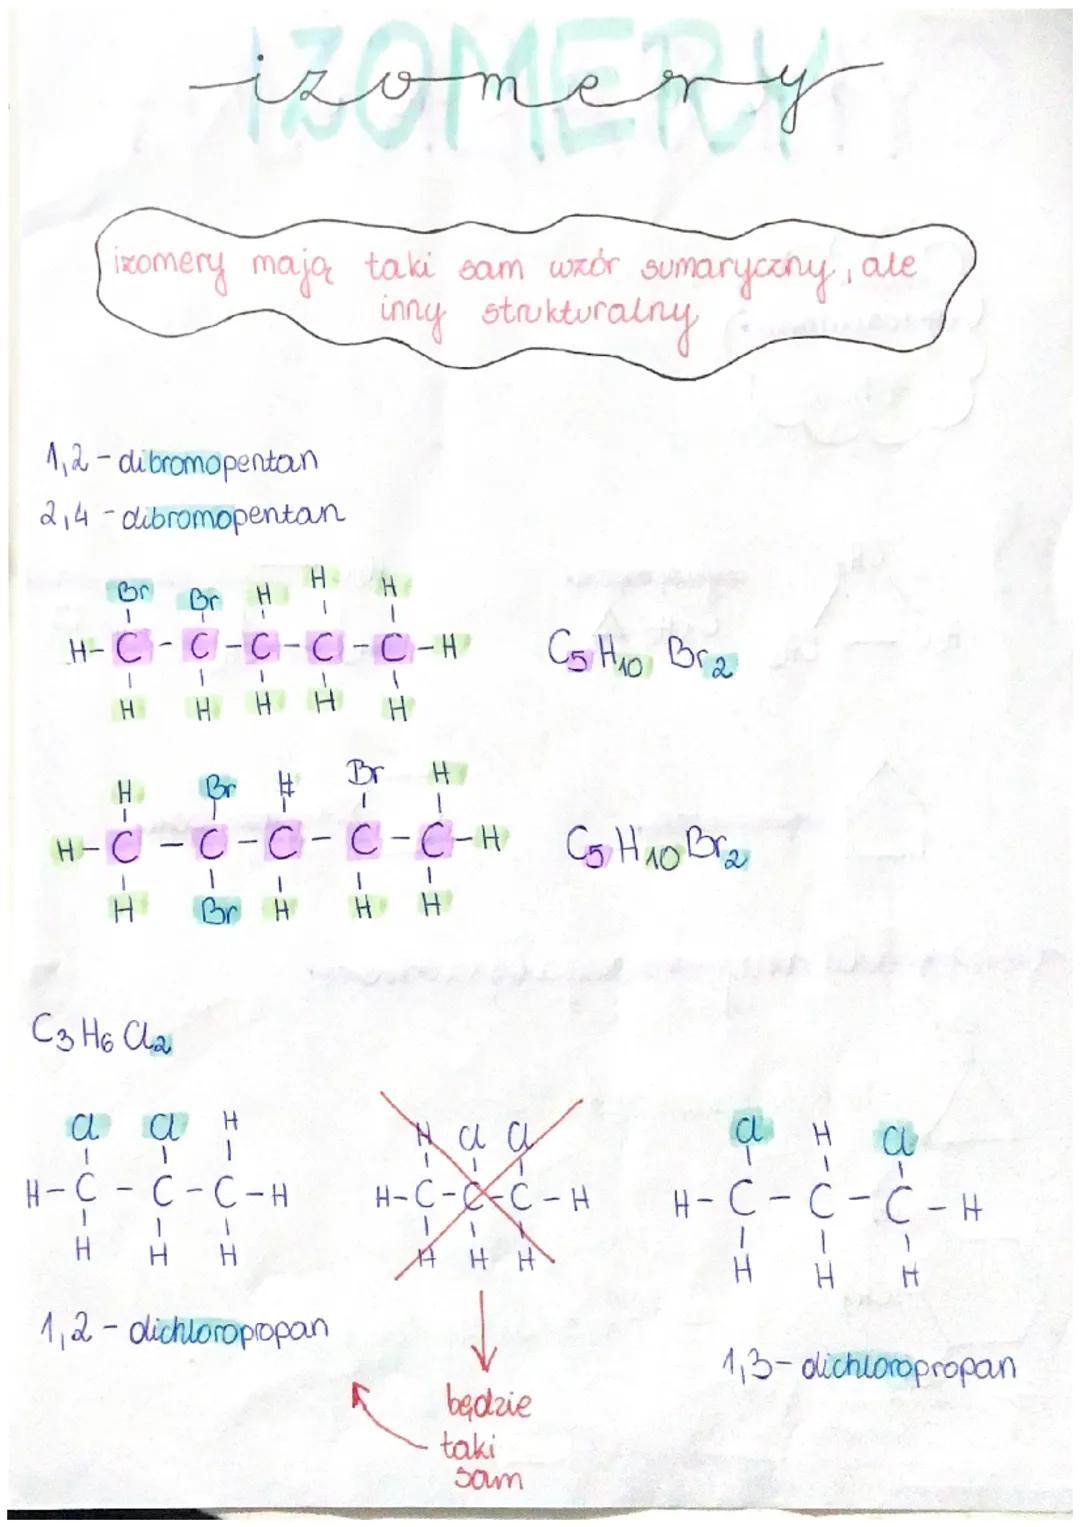 IZOMERY
izomery
izomery mają taki sam wzór sumaryczny, ale
inny strukturalny
1,2 - dibromopentan
2,4 - dibromopentan
Br Br H H H
H - C - C - C - C - C - H C5H10Br2
H H H H H
H Br H Br H
H - C - C - C - C - C - H C5H10Br2
H Br H H H
C3H6Cl2
Cl Cl H
H - C - C - C - H
H H H
1,2 - dichloropropan
H Cl Cl
H - C - C - C - H
H H H
będzie
taki
sam
Cl H Cl
H - C - C - C - H
H H H
1,3 - dichloropropan